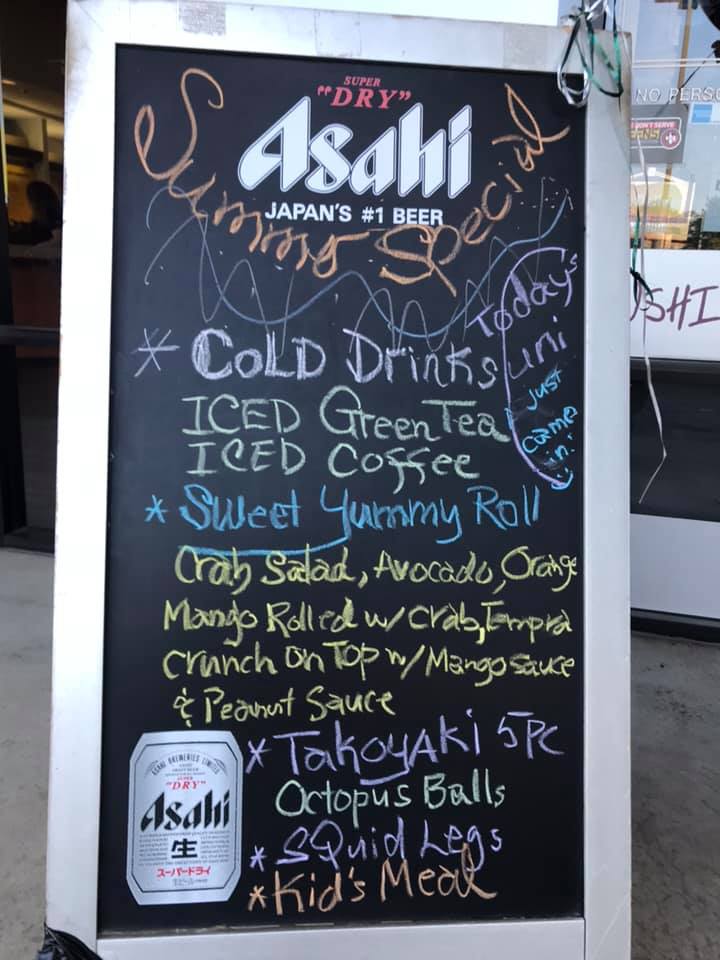 SUPER
"DRY"
Asahi
JAPAN'S #1 BEER
Summer Special
Today's
uni
just
came
in!
* COLD Drinks
ICED Green Tea
ICED Coffee
* Sweet Yummy Roll
Crab Salad, Avocado, Orange
Mango Rolled w/ Crab, Tempra
Crunch on Top w/ Mango sauce
& Peanut Sauce
* TAKOYAKi 5PC
Octopus Balls
* SQuid Legs
* Kid's Meal
ASAHI BREWERIES LIMITED
SUPER
"DRY"
Asahi
生
スーパードライ
NO PERSO
USHI